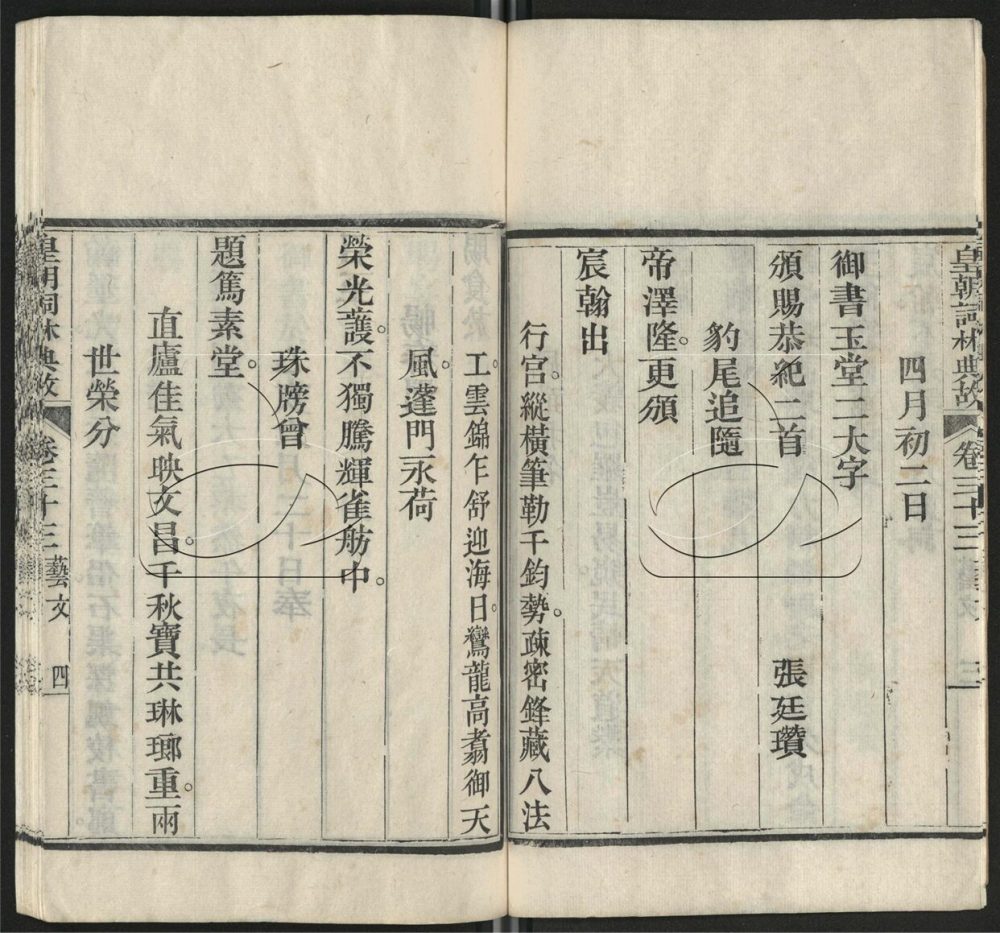 皇朝詞林典故 卷三十三 藝文 三
四月初二日
御書玉堂二大字
頒賜恭紀二首 張廷瓚
豹尾追隨
帝澤隆。更頒
宸翰出
行宮。縱橫筆勒千鈞勢。疎密鋒藏八法
工。雲錦乍舒迎海日。鸞龍高翥御天
風。蓬門永荷
榮光護。不獨騰輝雀舫中。
珠牓會
題篤素堂。
直廬佳氣映文昌。千秋寶共琳瑯重。兩
世榮分
皇朝詞林典故 卷三十三 藝文 四